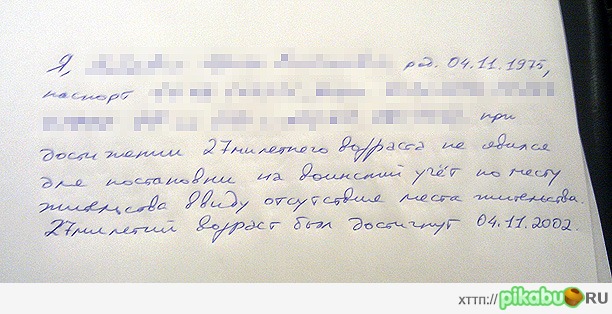 Я, род. 04.11.1975,
паспорт
при
достижении 27милетнего возраста не явился
для постановки на воинский учёт по месту
жительства ввиду отсутствие места жительства.
27милетий возраст был достигнут 04.11.2002.
хттп://pikabu.ру